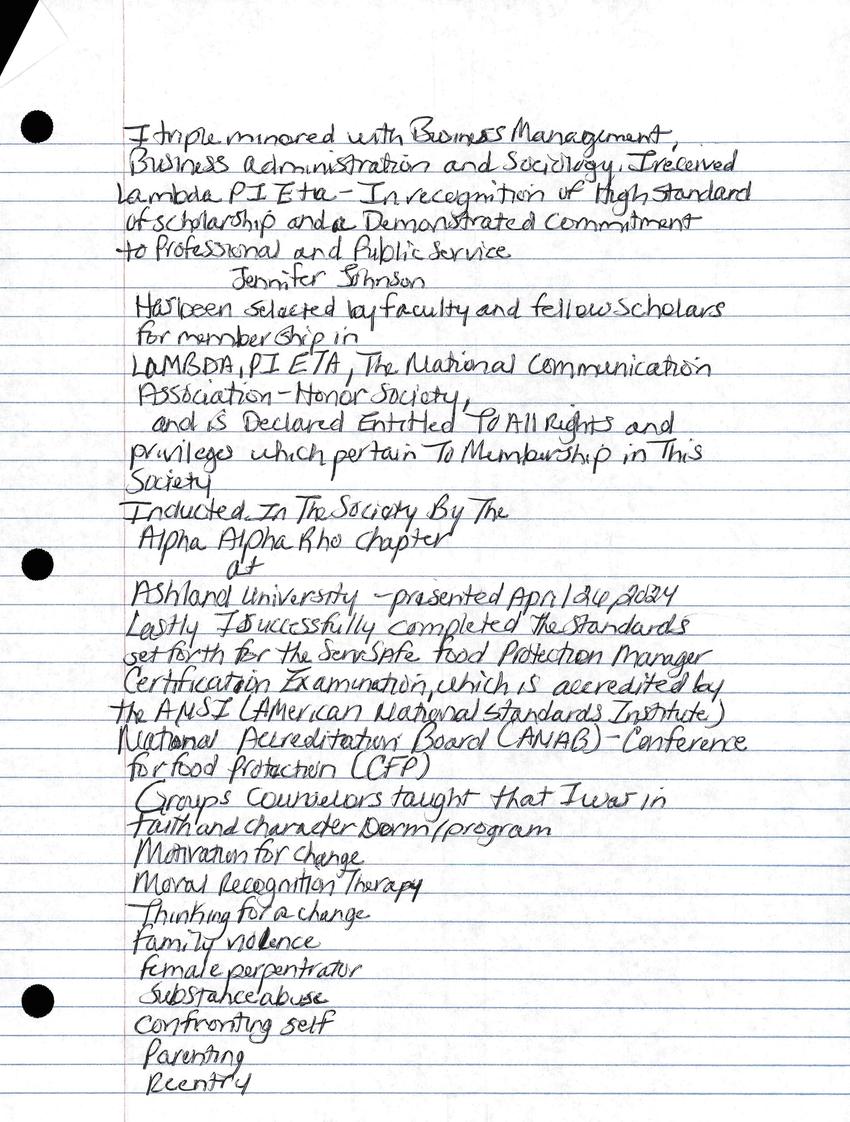 I triple minored with Business Management,
Business administration and Sociology. I received
Lambda PI Eta - In recognition of High Standard
of scholarship and a Demonstrated Commitment
to Professional and Public Service
Jennifer Johnson
Has been selected by faculty and fellow scholars
for membership in
LAMBDA, PI ETA, The National Communication
Association - Honor Society,
and is Declared Entitled To All Rights and
privileges which pertain To Membership in This
Society
Inducted In The Society By The
Alpha Alpha Rho Chapter
at
Ashland University - presented April 26, 2024
Lastly I successfully completed the standards
set forth for the ServSafe food Protection Manager
Certification Examination, which is accredited by
the ANSI (AMerican National Standards Institute)
National Accreditation Board (ANAB) - Conference
for food Protection (CFP)
Groups Counselors taught that I was in
faith and character Dorm/program
Motivation for change
Moral Recognition Therapy
Thinking for a change
family violence
female perpentrator
Substance abuse
confronting self
Parenting
Reentry